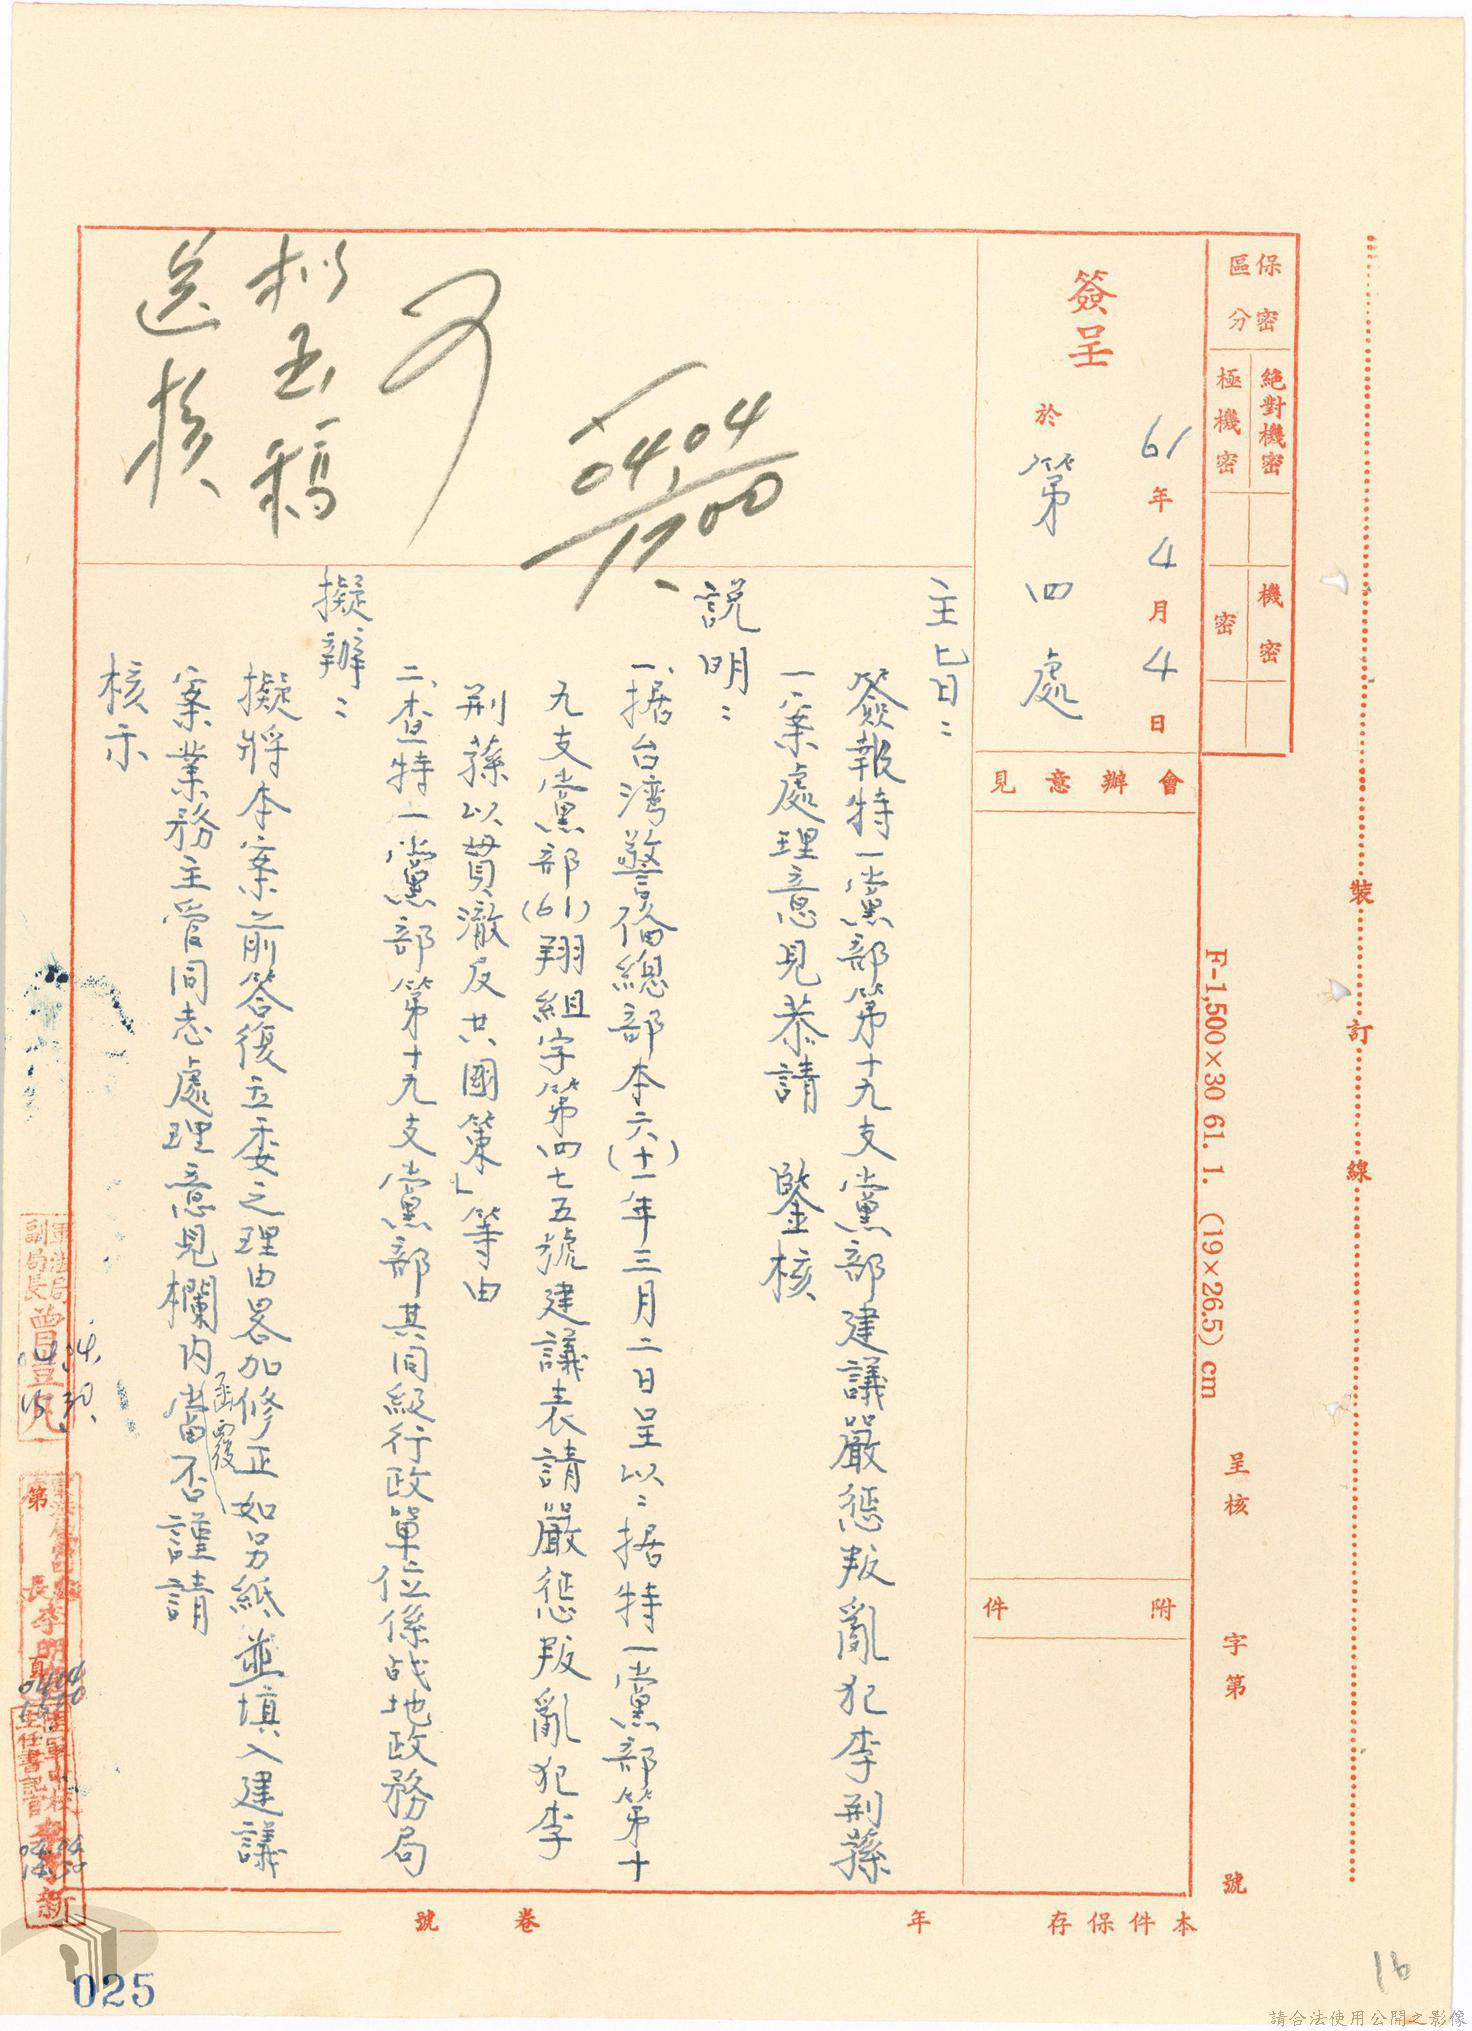 保密區分
絕對機密
極機密
機密
密
簽呈
61年4月4日
於第四處
會辦意見
附件
主旨：
簽報特一黨部第十九支黨部建議嚴懲叛亂犯李荊蓀
一案處理意見恭請　鑒核
說明：
一、据台湾警備總部本(六十一)年三月二日呈以：据特一黨部第十
九支黨部(61)翔組字第四七五號建議表請嚴懲叛亂犯李
荊蓀以貫澈反共國策」等由
二、查特一黨部第十九支黨部其同級行政單位係战地政務局
擬辦：
擬將本案前答復立委之理由畧加修正如另紙並填入建議
案業務主管同志處理意見欄內函覆當否謹請
核示
04,04
1700
擬函稿
送核
裝訂線
F-1,500×30 61. 1. (19×26.5) cm
呈核　字第　號
本件保存　年　卷　號
第　頁
軍法局
副局長曹昱凡
04,04
主任書記官
04.04
14.50
025
16
請合法使用公開之影像